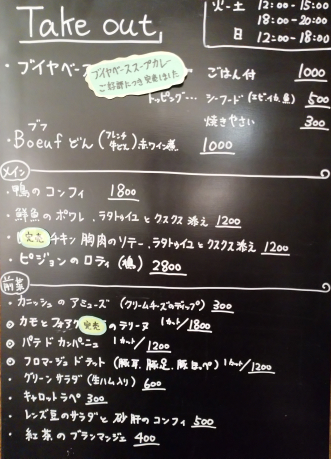 Take out
火-土 12:00-15:00
18:00-20:00
日 12:00-18:00
・ブイヤベース ごはん付 1000
ブイヤベーススープカレー
ご好評につき完売しました
トッピング… シーフード(エビ・イカ、魚) 500
焼きやさい 300
ブフ
・Boeufどん(フレンチ牛どん)赤ワイン煮 1000
メイン
・鴨のコンフィ 1800
・鮮魚のポワレ、ラタトゥイユとクスクス添え 1200
完売 チキン胸肉のソテー、ラタトゥイユとクスクス添え 1200
・ピジョンのロティ(鳩) 2800
前菜
・カニッシュのアミューズ(クリームチーズのディップ) 300
カモとフォアグラ 完売 のテリーヌ 1カット/1800
パテドカンペーニュ 1カット/1200
フロマージュドテット(豚耳、豚足、豚ホッペ) 1カット/1200
・グリーンサラダ(生ハム入り) 600
・キャロットラペ 300
・レンズ豆のサラダと砂肝のコンフィ 500
・紅茶のブランマンジェ 400